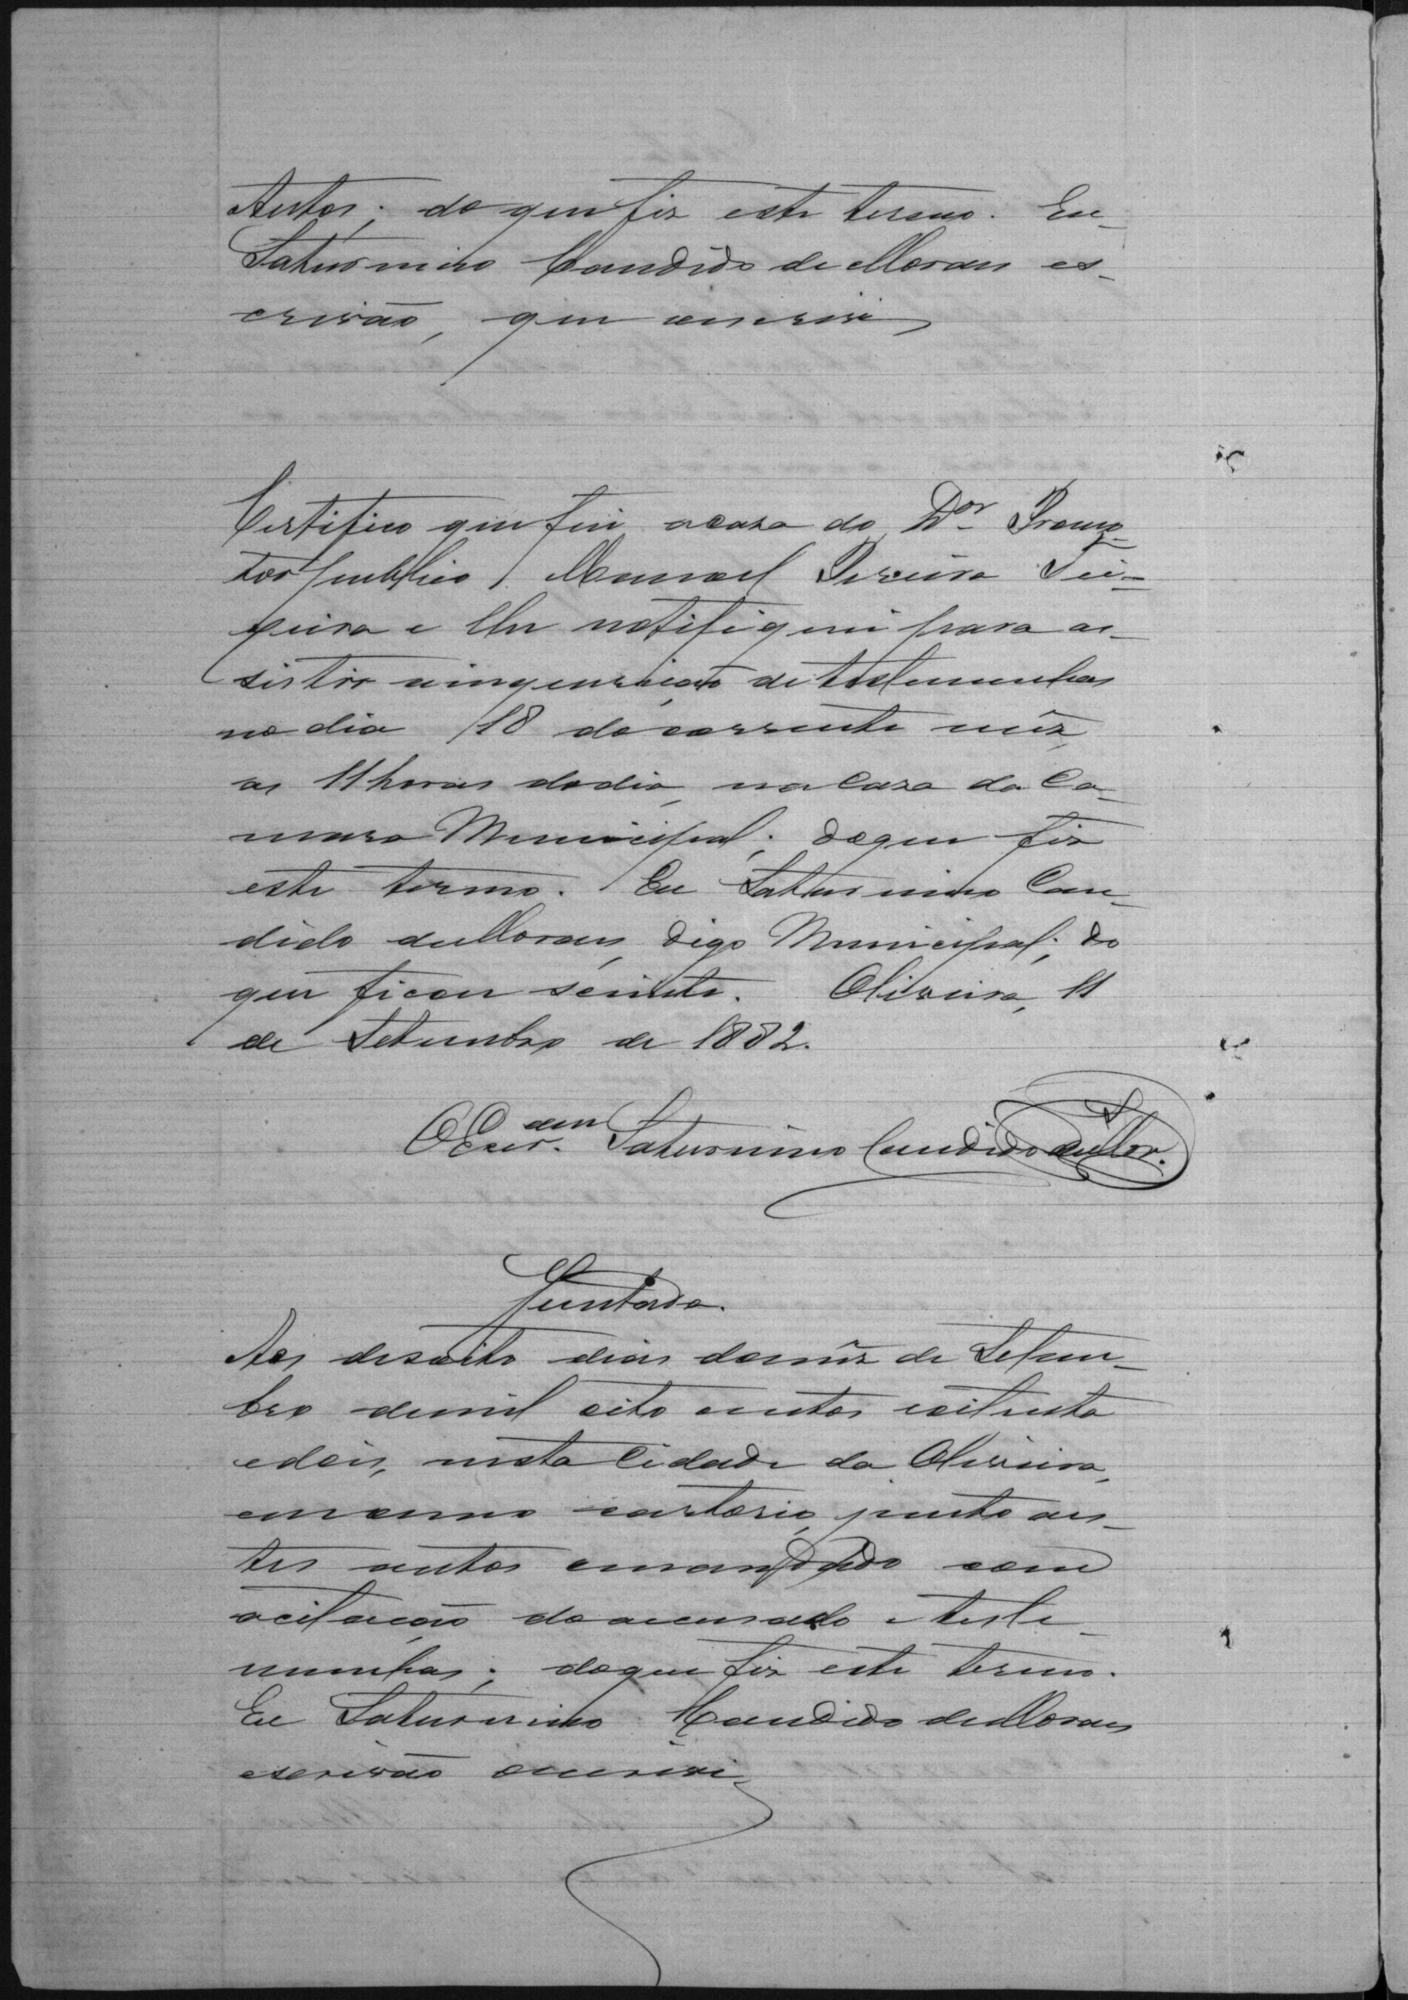 Autos; do que fiz este termo. Eu
Saturnino Candido de Moraes es-
crivão, que escrivi
Certifico que fui a casa do Dor Promo-
tor publico Manoel Pereira Tei-
xeira e lhe notifiquei para as-
sistir a inquirição de testemunhas
no dia 18 do corrente mêz,
as 11 horas do dia, na casa da Ca-
mara Municipal; do que fiz
este termo. Eu Saturnino Can-
dido de Moraes, digo Municipal; do
que ficou sciente. Oliveira, 11
de Setembro de 1882.
O Escr.am Saturnino Candido de Mor.
Juntada.
Aos desoito dias do mêz de Setem-
bro de mil oito centos e oitenta
e dois, nesta Cidade da Oliveira,
em meu cartorio, junto aes-
tes autos o mandado com
a citação do accusado e teste-
munhas; do que fiz este termo.
Eu Saturnino Candido de Moraes
escrivão o escrivi